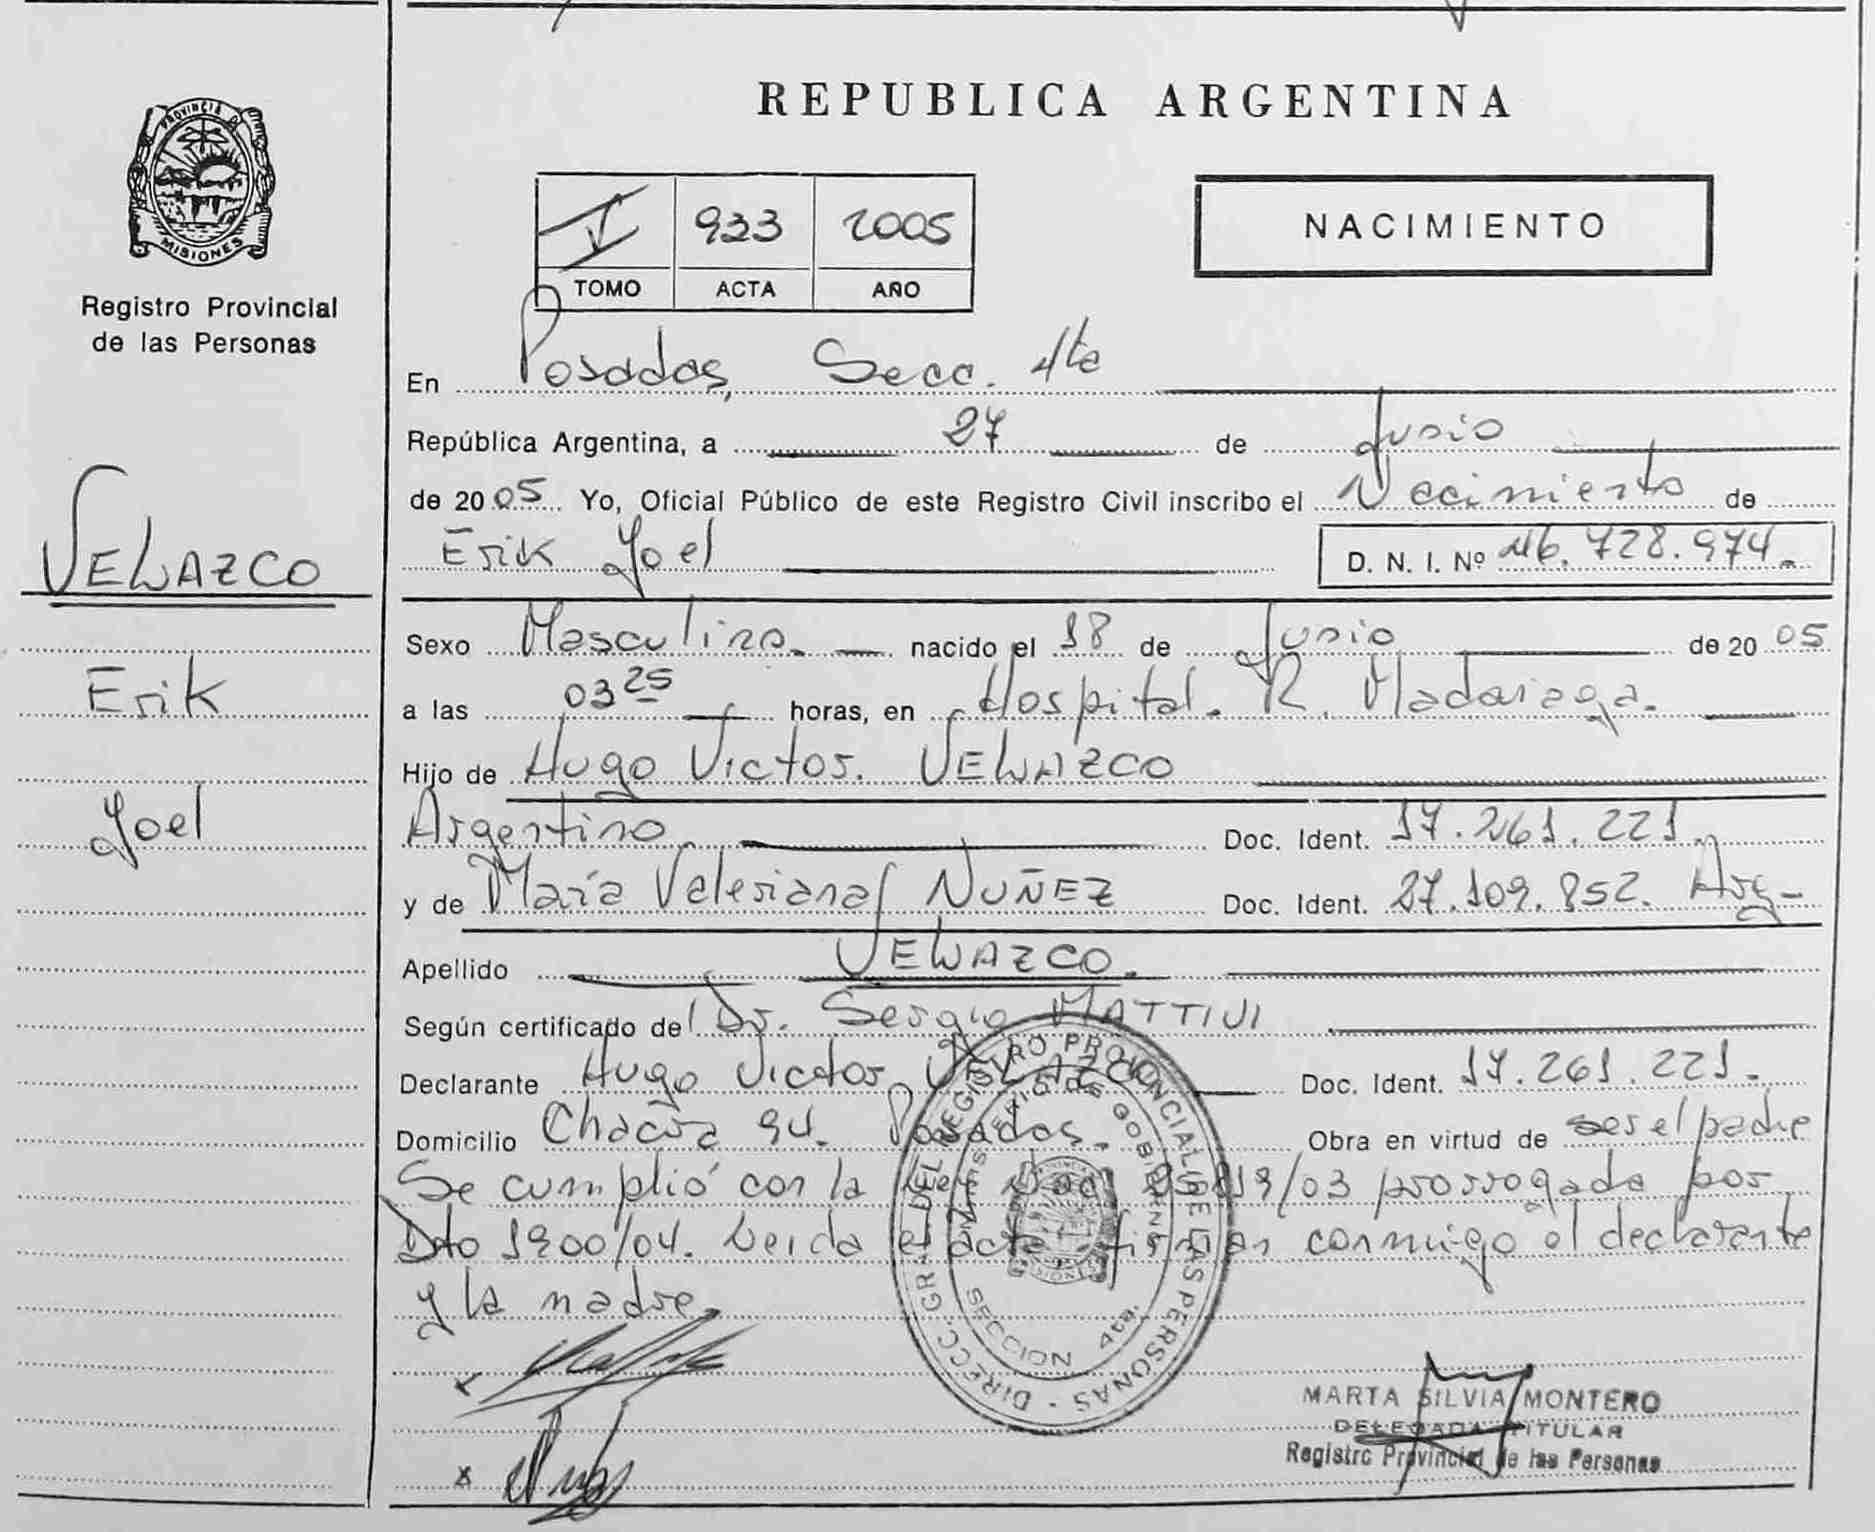 PROVINCIA D
MISIONES
Registro Provincial
de las Personas
VELAZCO
Erik
Joel
REPUBLICA ARGENTINA
I 933 2005
TOMO ACTA AÑO
NACIMIENTO
En Posadas, Secc. 4ta
República Argentina, a 27 de Junio
de 2005 Yo, Oficial Público de este Registro Civil inscribo el Nacimiento de
Erik Joel D. N. I. Nº 46.728.974.
Sexo Masculino. nacido el 18 de Junio de 2005
a las 03 25 horas, en Hospital. R. Madariaga.
Hijo de Hugo Victor. VELAZCO
Argentino Doc. Ident. 17.261.221.
y de María Valeriana NUÑEZ Doc. Ident. 27.109.852. Arg-
Apellido VELAZCO.
Según certificado de Dr. Sergio MATTIVI
Declarante Hugo Victor VELAZCO Doc. Ident. 17.261.221.
Domicilio Chacra 94. Posadas. Obra en virtud de ser el padre
Se cumplió con la Ley Nac. 25819/03 prorrogada por
Dto 1900/04. Leida el acta firman conmigo el declarante
y la madre.
DIRECC. GRAL DEL REGISTRO PROVINCIAL DE LAS PERSONAS
MINISTERIO DE GOBIERNO
SECCION 4ta.
MARTA SILVIA MONTERO
DELEGADA TITULAR
Registro Provincial de las Personas